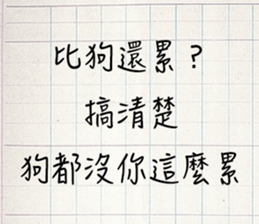 比狗還累？
搞清楚
狗都沒你這麼累